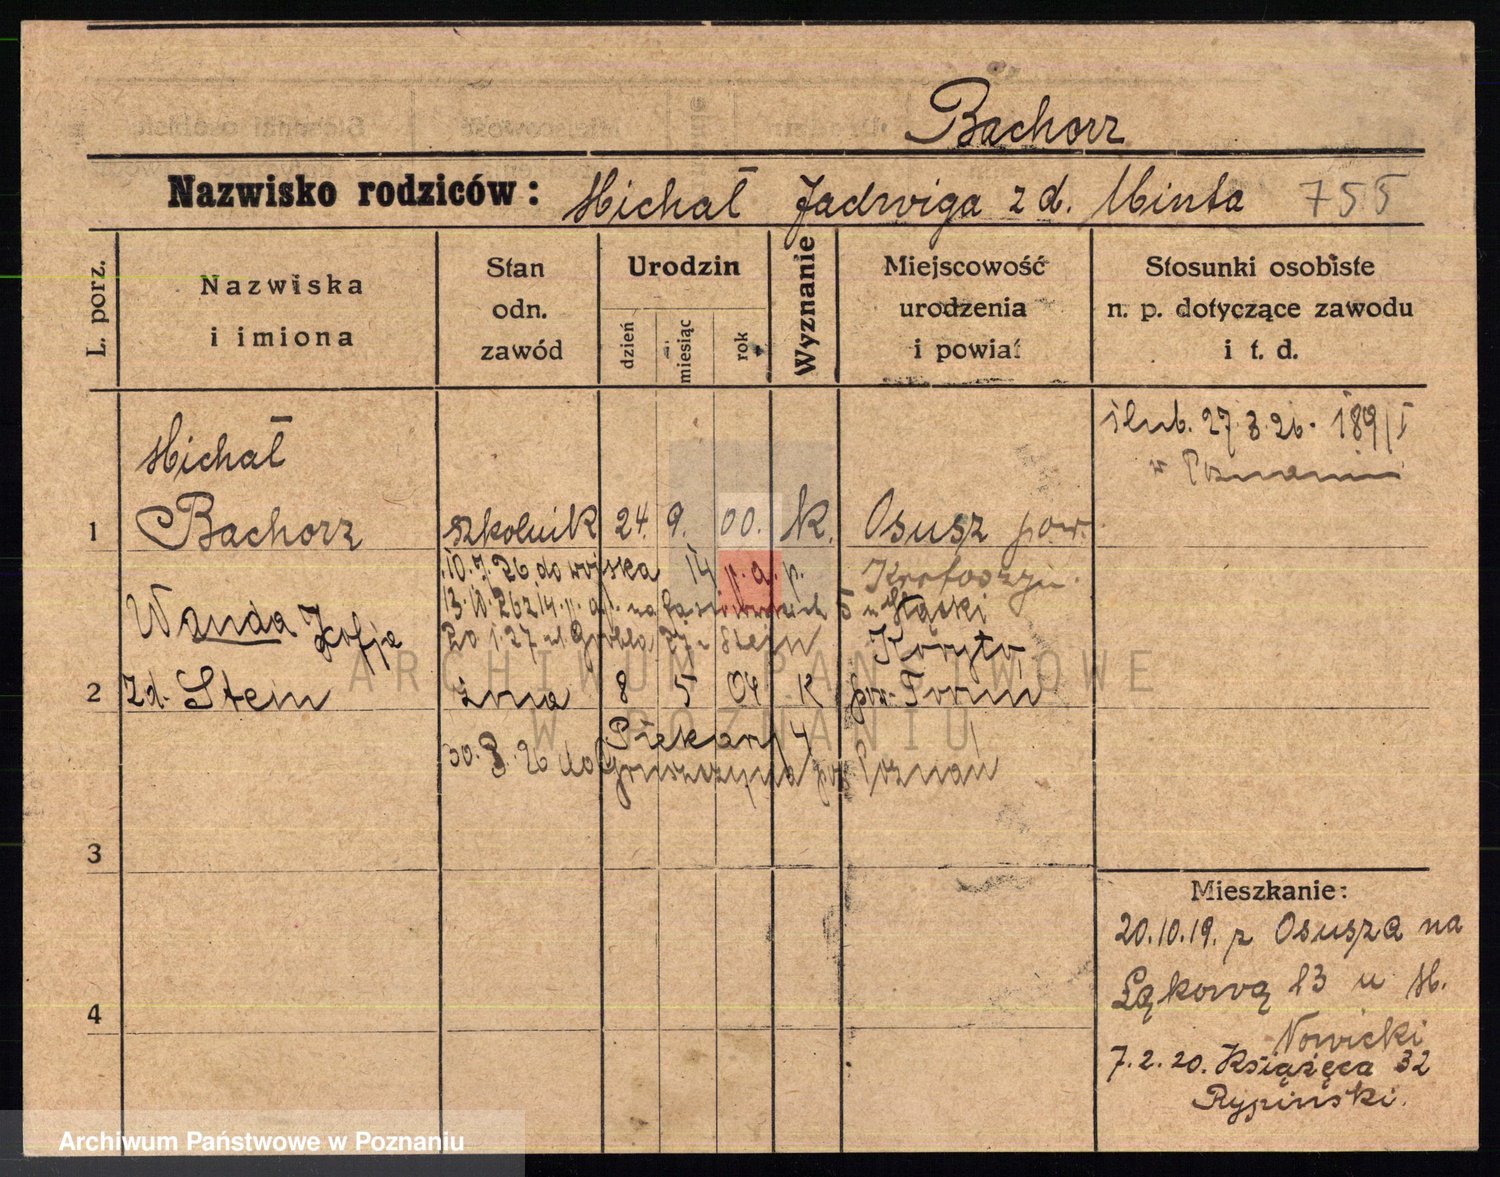 Bachorz
Nazwisko rodziców: Michał Jadwiga z d. Minta 755
L. porz.
Nazwiska
i imiona
Stan
odn.
zawód
Urodzin
dzień
miesiąc
rok
Wyznanie
Miejscowość
urodzenia
i powiat
Stosunki osobiste
n. p. dotyczące zawodu
i t. d.
ślub. 27.3.26. 189/I
w Poznaniu
Michał
1 Bachorz szkolnik 24. 9. 00. k. Osusz pow.
10.7.26 do wojska 14 p. a. p. Krotoszyn.
13.10.26 z 14. p. a. p. na 5 u
Wanda Zofja
Koryta
20 1.27 ul Grobla u Stein
2 zd. Stein żona 8 5 04 k pow. Toruń
Piekary 4
30.8.26 do pow Poznań
3
4
Mieszkanie:
20.10.19. z Osusza na
Łąkową 13 u M.
Nowicki
7.2.20. Książęca 32
Rypiński.
ARCHIWUM PAŃSTWOWE
W POZNANIU
Archiwum Państwowe w Poznaniu